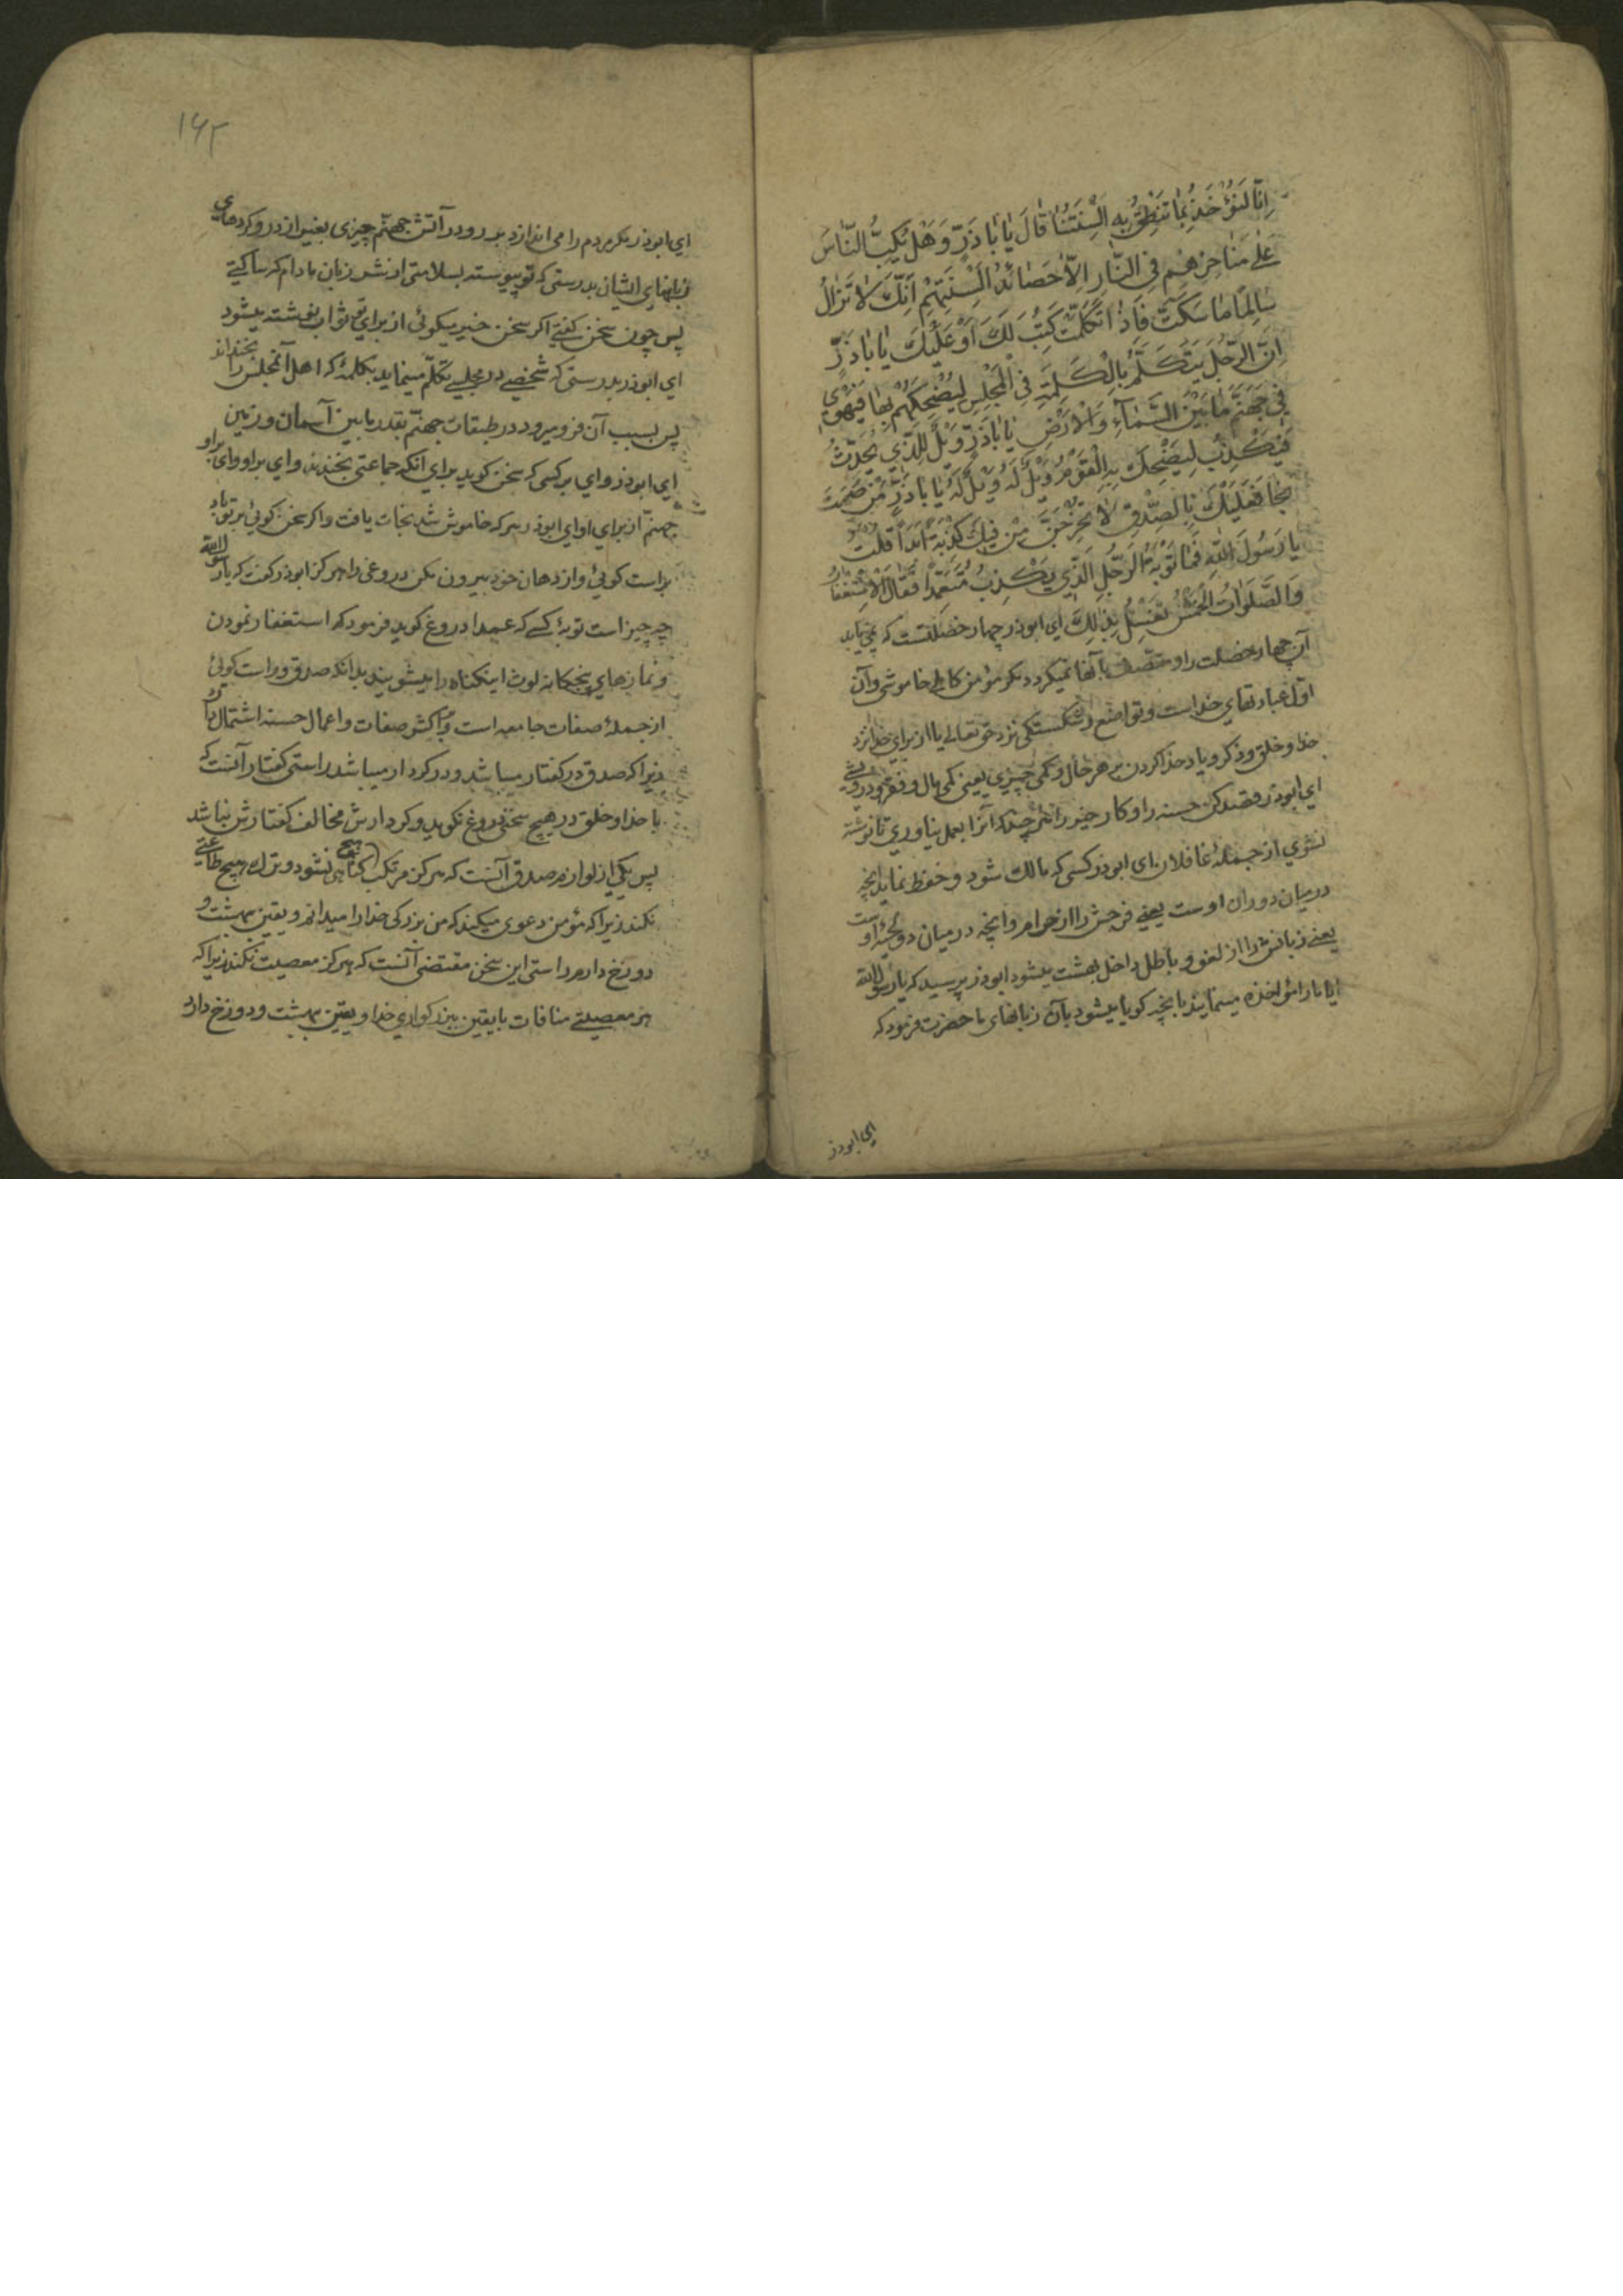 اِنّا لَنُؤْخَذُ بِمَا تَنْطِقُ بِهِ اَلْسِنَتُنَا قَالَ يَا بَا ذَرٍّ وَهَلْ يَكُبُّ النَّاسَ
عَلٰى مَنَاخِرِهِمْ فِي النَّارِ اِلَّا حَصَائِدُ اَلْسِنَتِهِمْ اِنَّكَ لَا تَزَالُ
سَالِمًا مَا سَكَتَّ فَاِذَا تَكَلَّمْتَ كُتِبَ لَكَ اَوْ عَلَيْكَ يَا بَا ذَرٍّ
اِنَّ الرَّجُلَ يَتَكَلَّمُ بِالْكَلِمَةِ فِي الْمَجْلِسِ لِيُضْحِكَهُمْ بِهَا فَيَهْوِي
فِي جَهَنَّمَ مَا بَيْنَ السَّمَاءِ وَالْاَرْضِ يَا بَا ذَرٍّ وَيْلٌ لِلَّذِي يُحَدِّثُ
فَيَكْذِبُ لِيَضْحَكَ بِهِ الْقَوْمُ وَيْلٌ لَهُ وَيْلٌ لَهُ يَا بَا ذَرٍّ مَنْ صَمَتَ
نَجَا فَعَلَيْكَ بِالصِّدْقِ لَا تَخْرُجَنَّ مِنْ فِيكَ كَذِبَةٌ اَبَدًا قُلْتُ
يَا رَسُولَ اللهِ فَمَا تَوْبَةُ الرَّجُلِ الَّذِي يَكْذِبُ مُتَعَمِّدًا فَقَالَ الْاِسْتِغْفَارُ
وَالصَّلَوَاتُ الْخَمْسُ تَغْسِلُ ذٰلِكَ ای ابوذر چهار خصلتست که نمی‌یابد
آن چهار خصلت را و متصف بآنها نمیگردد مگر مؤمن کامل خاموشی و آن
اول عبادتهای خداست و تواضع و شکستگی نزد حق تعالی یا از برای خدا نزد
خدا و خلق و ذکر و یاد خدا کردن بر هر حال و کمی چیزی یعنی کمی مال و فقر و درویشی
ای ابوذر قصد کن حسنه را و کار خیر را هر چند که آنرا بعمل نیاوری تا نوشته
نشوی از جملهٔ غافلان ای ابوذر کسی که مالک شود و حفظ نماید آنچه
در میان دو ران اوست یعنی فرجش را از حرام و آنچه در میان دو لحیهٔ اوست
یعنی زبانش را از لغو و باطل داخل بهشت میشود ابوذر پرسید که یا رسول الله
آیا ما را مؤاخذه مینمایند بآنچه گویا میشود بآن زبانهای ما حضرت فرمود که
ای ابوذر
۱۶۲
ای ابوذر مگر مردم را می‌اندازد بر رو در آتش جهنم چیزی بغیر از درو کردهای
زبانهای ایشان بدرستی که تو پیوسته بسلامتی از شر زبان مادام که ساکتی
پس چون سخن گفتی اگر سخن خیر میگوئی از برای تو ثواب نوشته میشود
ای ابوذر بدرستی که شخصی در مجلسی تکلم مینماید بکلمهٔ که اهل آنمجلس را بخنداند
پس بسبب آن فرو میرود در طبقات جهنم بقدر مابین آسمان و زمین
ای ابوذر وای بر کسی که سخن گوید برای آنکه جماعتی بخندند وای بر او وای بر او
جهنم از برای او ای ابوذر هر که خاموش شد نجات یافت و اگر سخن گوئی بر تو باد
براست گوئی و از دهان خود بیرون مکن دروغی را هرگز ابوذر گفت که یا رسول الله
چه چیز است توبهٔ کسی که عمدا دروغ گوید فرمود که استغفار نمودن
و نمازهای پنجگانه لوث اینگناه را میشویند بدانکه صدق و راست گوئی
از جملهٔ صفات جامعه است و بر اکثر صفات و اعمال حسنه اشتمال دارد
زیرا که صدق در گفتار میباشد و در کردار میباشد راستی گفتار آنست که
با خدا و خلق در هیچ سخنی دروغ نگوید و کردارش مخالف گفتارش نباشد
پس یکی از لوازم صدق آنست که هرگز مرتکب هیچ گناهی نشود و ترک هیچ طاعتی
نکند زیرا که مؤمن دعوی میکند که من بزرگی خدا را میدانم و یقین بهشت و
دوزخ دارم راستی این سخن مقتضی آنست که هرگز معصیت نکند زیرا که
هر معصیتی منافات با یقین ببزرگواری خدا و یقین بهشت و دوزخ دارد